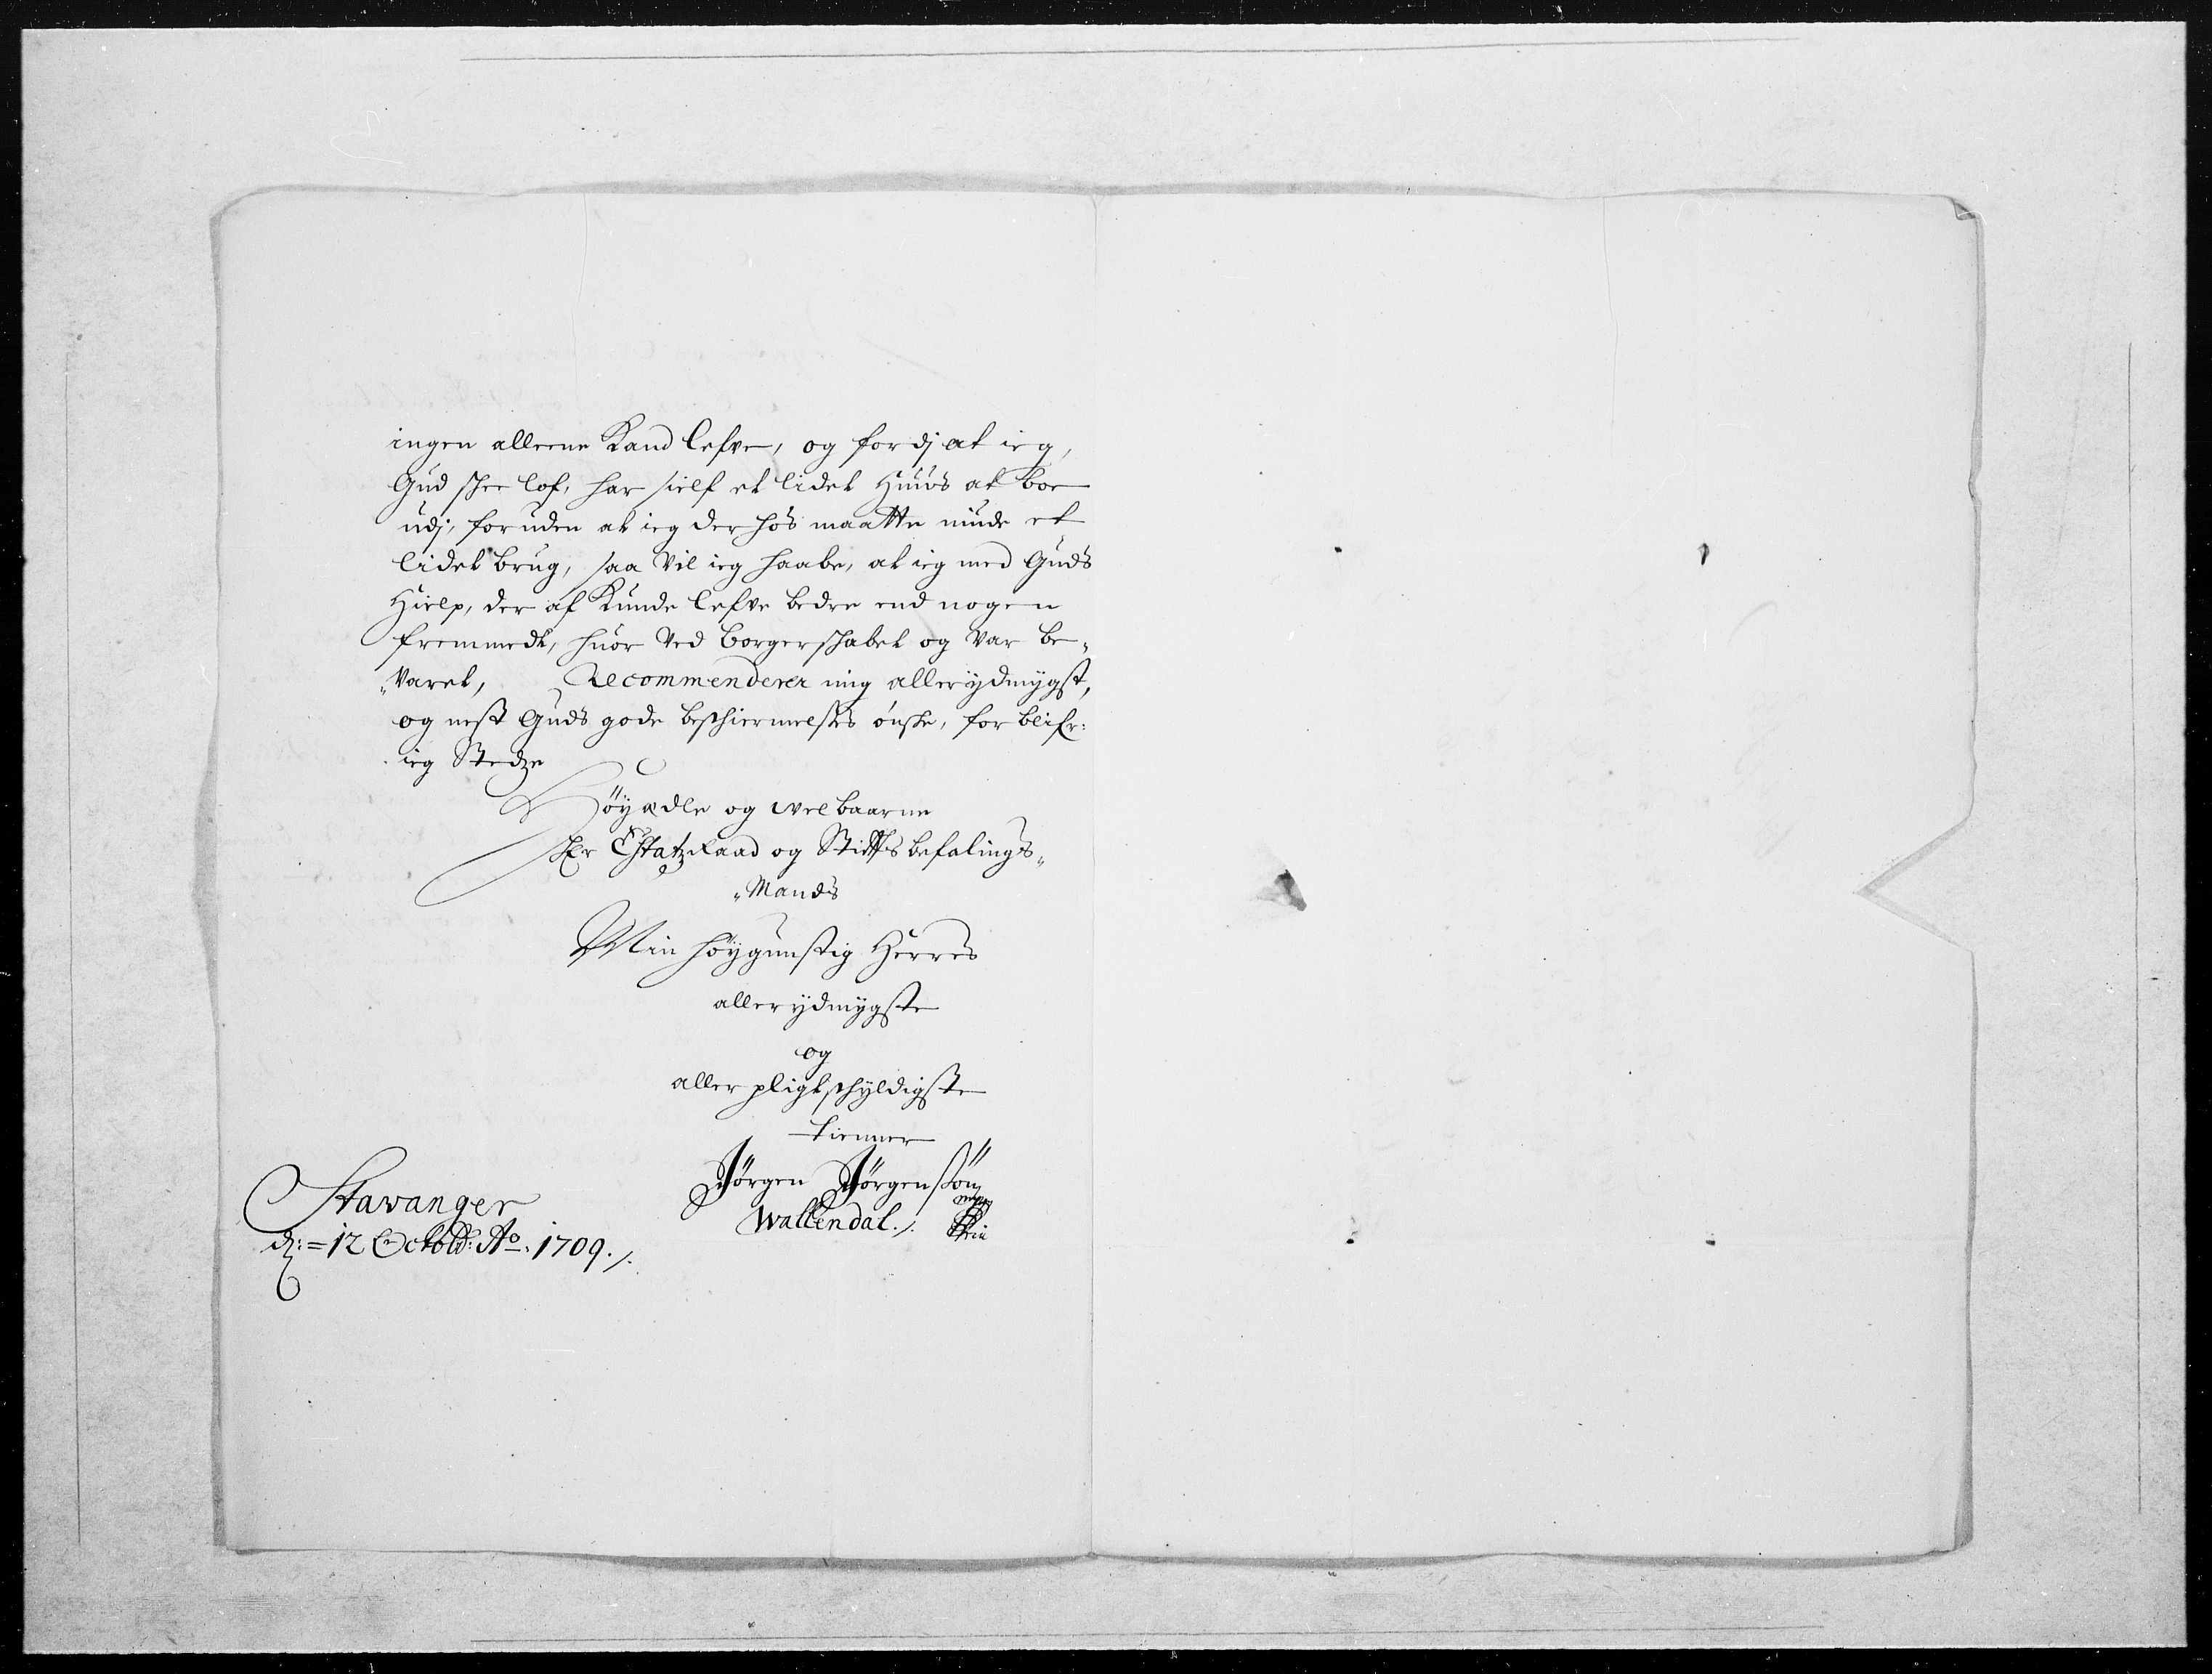 ingen alleene Kand lefve, og fordj at ieg,
Gud skee lof, har sielf et lidet Huus at boe
udj, foruden at ieg der hos maatte niude et
lidet brug, saa Vil ieg haabe, at ieg med Guds
Hielp, der af Kunde lefve bedre end nogen
fremmede, huor Ved borgerskabet og Var be„
„Varet, Recommenderer mig allerydmygst,
og nest Guds gode beskiermelses ønske, for blifr:
ieg Stedze
Höyædle og welbaarne
Hr Etatzraad og Stiftsbefalings„
„Mands
Min höygunstig Herres
allerydmygste
og
allerpligtskyldigste
tienner
Jörgen Jörgensön
Wallendal./.
Stavanger
d: = 12 Octobr: Ao. 1709./.